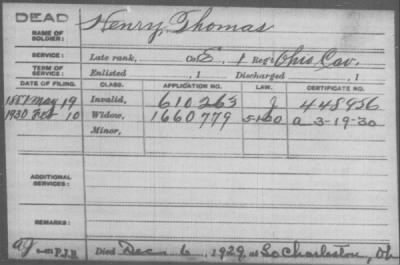 DEAD
NAME OF SOLDIER: Henry, Thomas
SERVICE: Late rank, Co. E, 1 Reg't Ohio Cav.
TERM OF SERVICE: Enlisted , 1 Discharged , 1
DATE OF FILING. CLASS. APPLICATION NO. LAW. CERTIFICATE NO.
1887 May 19 Invalid, 610263 J 448956
1930 Feb 10 Widow, 1660779 5-1-20 a 3-19-30
Minor,
ADDITIONAL SERVICES:
REMARKS:
Died Dec 6, 1929, at So Charleston, Oh